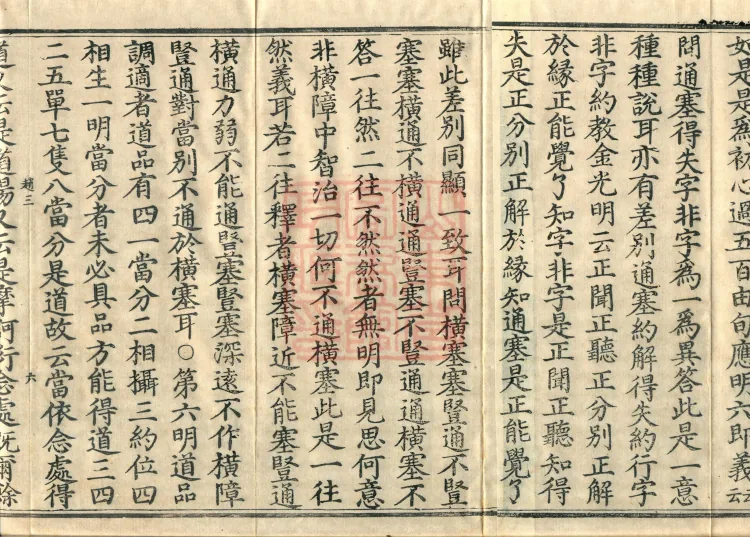 如是是爲初心過五百由旬應明六即義云
問通塞得失字非字爲一爲異答此是一意
種種說耳亦有差別通塞約解得失約行字
非字約教金光明云正聞正聽正分別正解
於緣正能覺了知字非字是正聞正聽知得
失是正分別正解於緣知通塞是正能覺了
雖此差別同顯一致耳問橫塞塞豎通不豎
塞塞橫通不橫通通豎塞不豎通通橫塞不
答一往然二往不然然者無明即見思何意
非橫障中智治一切何不通橫塞此是一往
然義耳若二往釋者橫塞障近不能塞豎通
橫通力弱不能通豎塞豎塞深遠不作橫障
豎通對當別不通於橫塞耳○第六明道品
調適者道品有四一當分二相攝三約位四
相生一明當分者未必具品方能得道三四
二五單七隻八當分是道故云當依念處得
趙三
六
道又云是道場又云是摩訶衍念處既爾餘